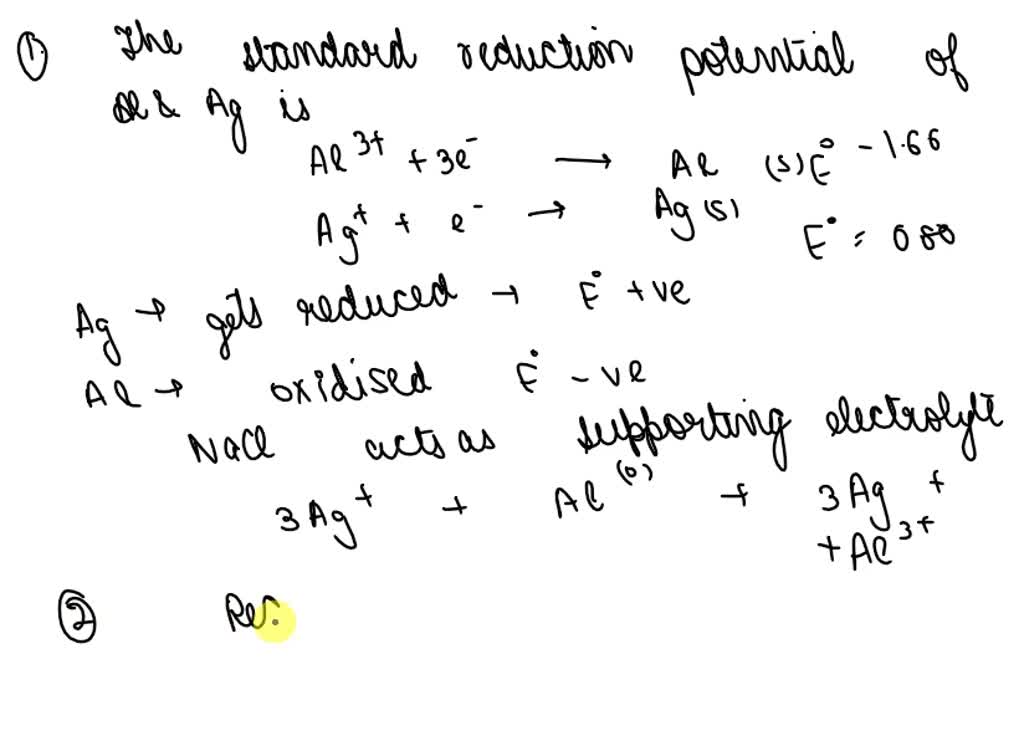 ① The standard reduction potential of
Al & Ag is
Al³⁺ + 3e⁻ → Al (s) E° - 1.66
Ag⁺ + e⁻ → Ag (s) E° = 0.80
Ag → gets reduced → E° +ve
Al → oxidised E° -ve
NaCl acts as supporting electrolyte
3Ag⁺ + Al⁽⁰⁾ → 3Ag⁺
+ Al³⁺
② Rec